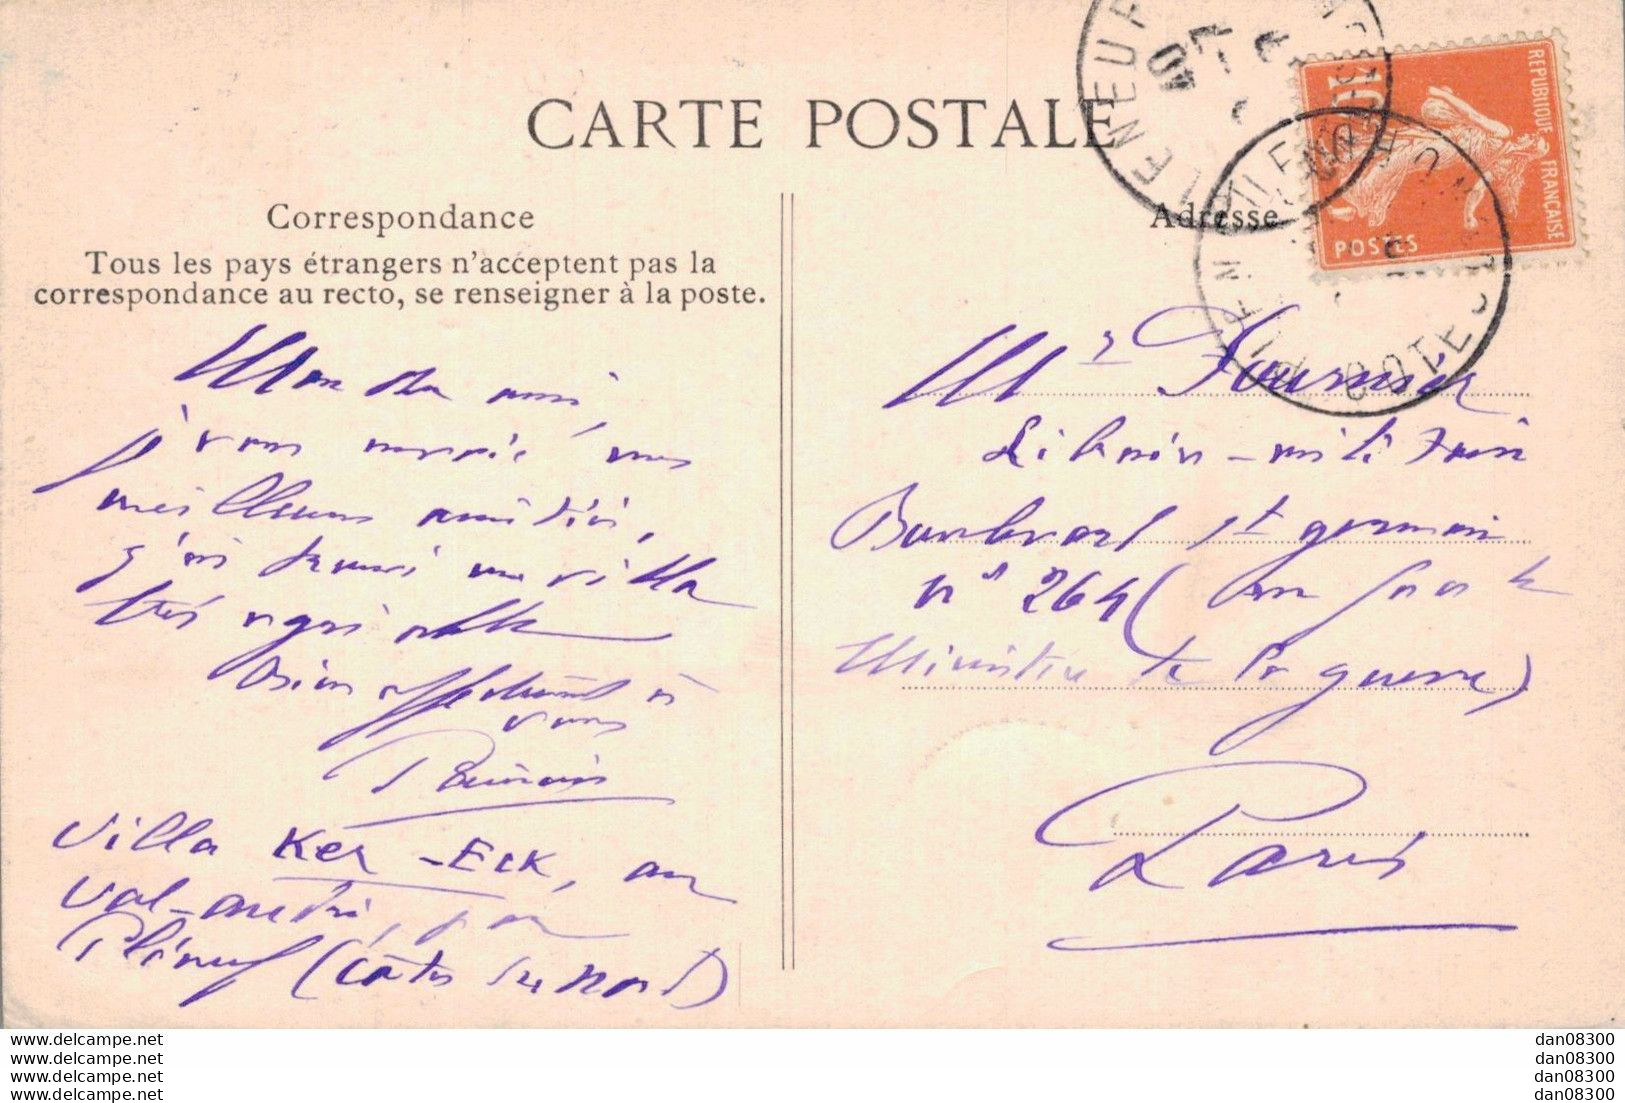 CARTE POSTALE
Correspondance
Tous les pays étrangers n'acceptent pas la
correspondance au recto, se renseigner à la poste.
Mon cher ami,
je vous envoie mes
meilleures amitiés,
j'ai trouvé une villa
très agréable
Bien affectueusement à
vous
Villa Ker-Eck, au
val-andré, par
Pléneuf (Côtes du Nord)
Adresse
REPUBLIQUE FRANÇAISE
POSTES
10
PLENEUF
COTES DU NORD
Mr Fournier
Librairie militaire
Boulevard St germain
n° 264 (en face le
Ministère de la guerre)
Paris
www.delcampe.net
www.delcampe.net
www.delcampe.net
www.delcampe.net
dan08300
dan08300
dan08300
dan08300